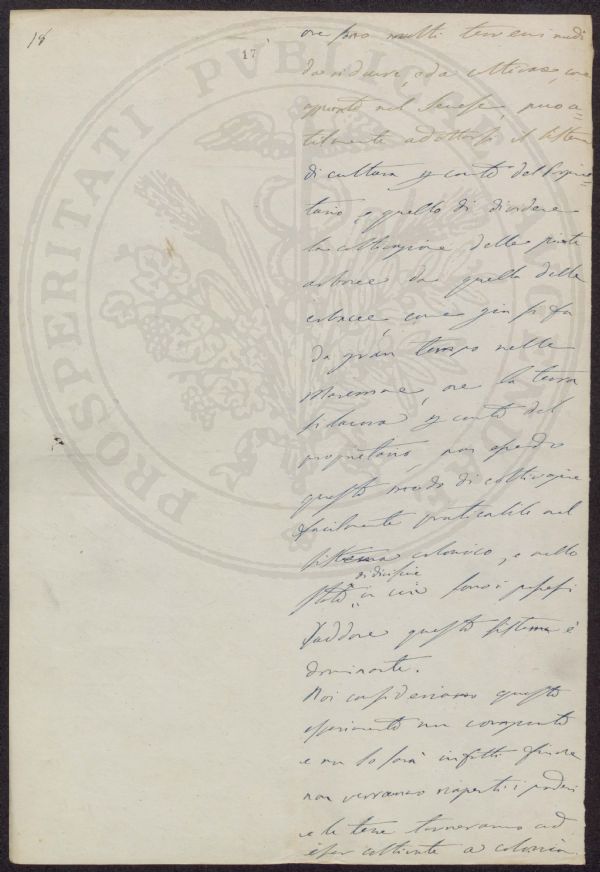 18
17
ove sono molti terreni nudi
da ridurre, e da coltivare, come
appunto nel Senese, può a=
adottarsi il sistema
di cultura p conto del Proprie=
tario, e quello di dividere
la coltivazione delle piante
arboree da quella delle
erbacee, come già si fa
da gran tempo nelle
Maremme, ove la terra
si lavora p conto del
proprietario, non essendo
questo modo di coltivazione
facilmente praticabile nel
sistema colonico, e nello
stato in cui sono i paesi
laddove questo sistema è
dominante.
Noi consideriamo questo
esperimento un
e un lo sarà infatti finché
non verranno riaperti i poderi
e le terre torneranno ad
esser coltivate a colonia
PROSPERITATI PVBLICAE AVGENDAE